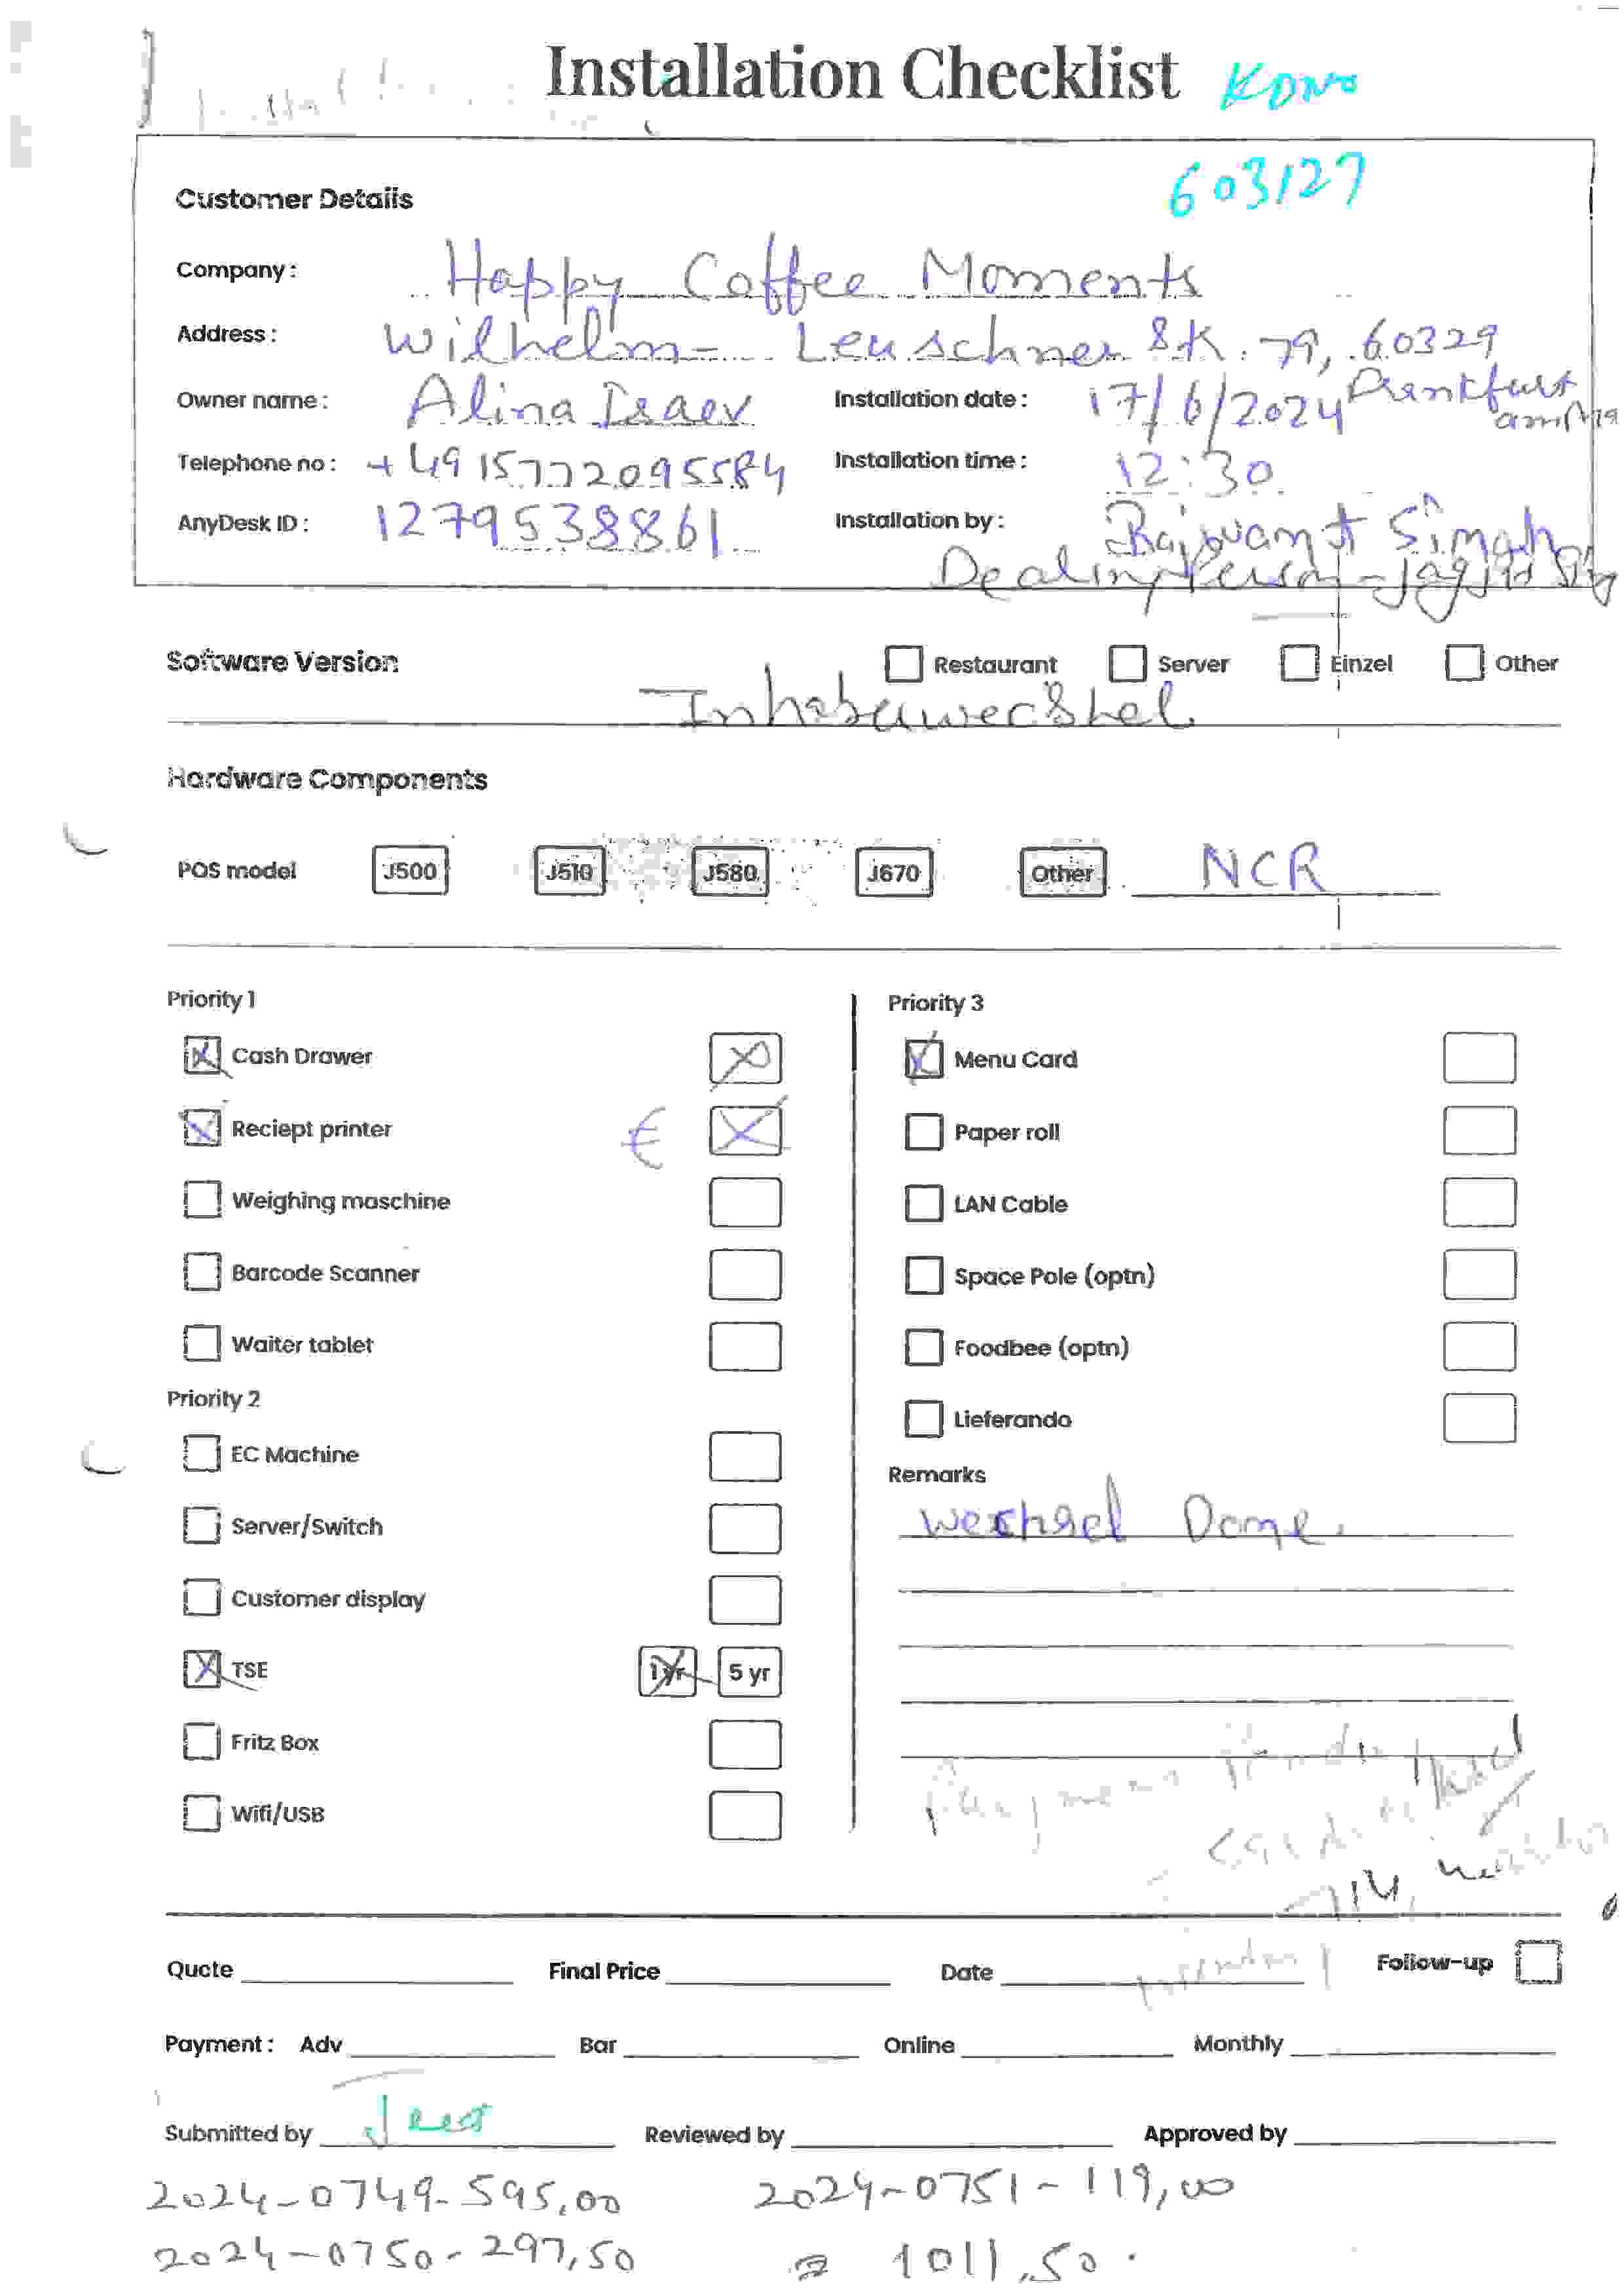 Installation Checklist
603127
Customer Details
Company: Happy Coffee Moments
Address: Wilhelm- Leuschner str. 79, 60329
Frankfurt
Owner name: Alina Isaev Installation date: 17/6/2024
Telephone no: +4915772095584 Installation time: 12:30
AnyDesk ID: 1279538861 Installation by: Rajwant Singh
Dealing Person-
Software Version Restaurant Server Einzel Other
Hardware Components
POS model J500 J510 J580 J670 Other NCR
Priority 1
Cash Drawer
Reciept printer €
Weighing maschine
Barcode Scanner
Waiter tablet
Priority 2
EC Machine
Server/Switch
Customer display
TSE 1 yr 5 yr
Fritz Box
Wifi/USB
Priority 3
Menu Card
Paper roll
LAN Cable
Space Pole (optn)
Foodbee (optn)
Lieferando
Remarks
Done.
Quote Final Price Date Follow-up
Payment: Adv Bar Online Monthly
Submitted by Reviewed by Approved by
2024-0749-595,00 2024-0751-119,00
2024-0750-297,50 1011,50.